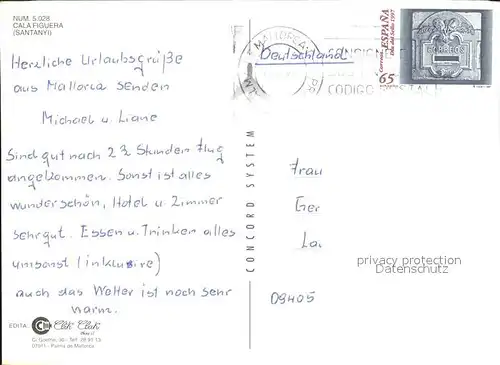 NUM. 5.028
CALA FIGUERA
(SANTANYI)
Herzliche Urlaubsgrüße
aus Mallorca senden
Michael u. Liane
Sind gut nach 2 ¾ Stunden Flug
angekommen. Sonst ist alles
wunderschön, Hotel u. Zimmer
sehr gut. Essen u. Trinken alles
umsonst (inklusive)
auch das Wetter ist noch sehr
warm.
EDITA:
Clik Clak
07011 - Palma de Mallorca
CONCORD SYSTEM
MALLORCA
CODIGO POSTAL
Deutschland
Correos ESPAÑA
Día del Sello 1997
65
CORREOS
Frau
Ger
La
privacy protection
Datenschutz
09405